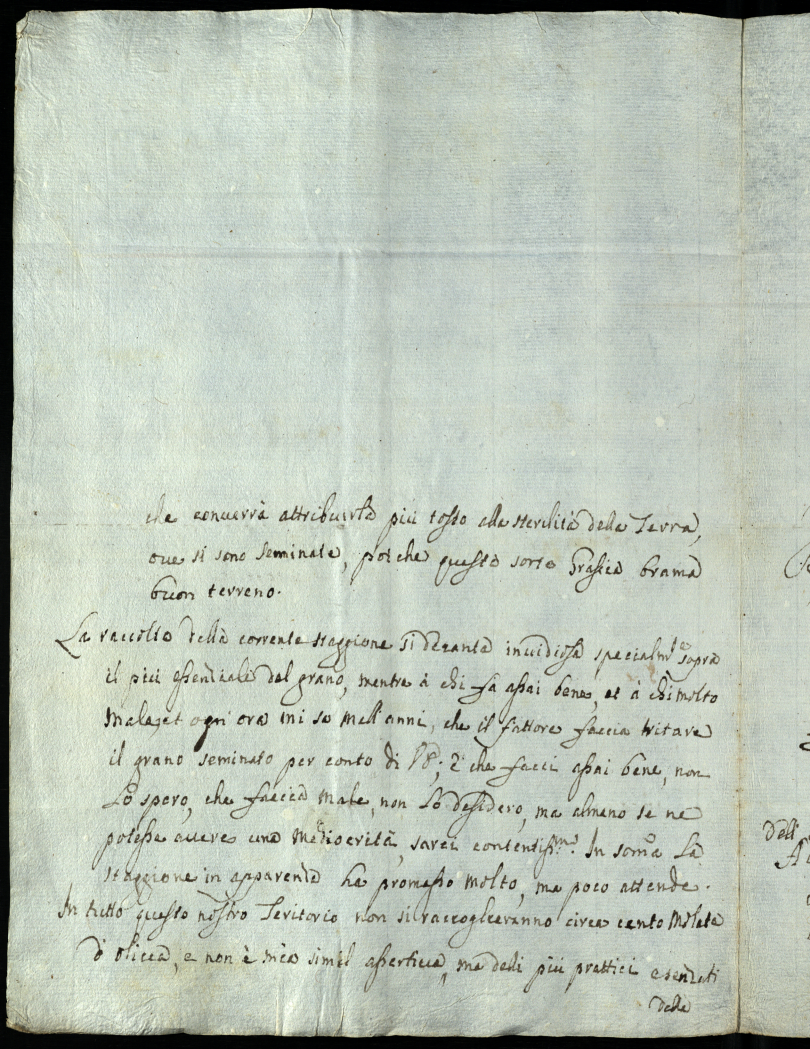 che converrà attribuirlà più tosto alla sterilità della Terra,
oue si sono seminate, poiche questa sorte Grascia brama
buon terreno.
La raccolta della corrente staggione si decanta invidiosa, specialm.te sopra
il più essenziale del grano, mentre à chi fa assai bene, et à chi molto
male, et ogni ora mi se mell'anni, che il fattore faccia tritare
il grano seminato per conto di V.S.; che facci assai bene, non
Lo spero, che faccia male, non Lo desidero, ma almeno se ne
potesse auere una mediocrità, sarei contentiss.mo. In soma La
staggione in apparenza ha promesso molto, ma poco attende.
In tutto questo nostro Teritorio non si raccoglieranno circa cento Molete
d'oliua, e non è mica simil assertiua, ma delli più prattici
delle